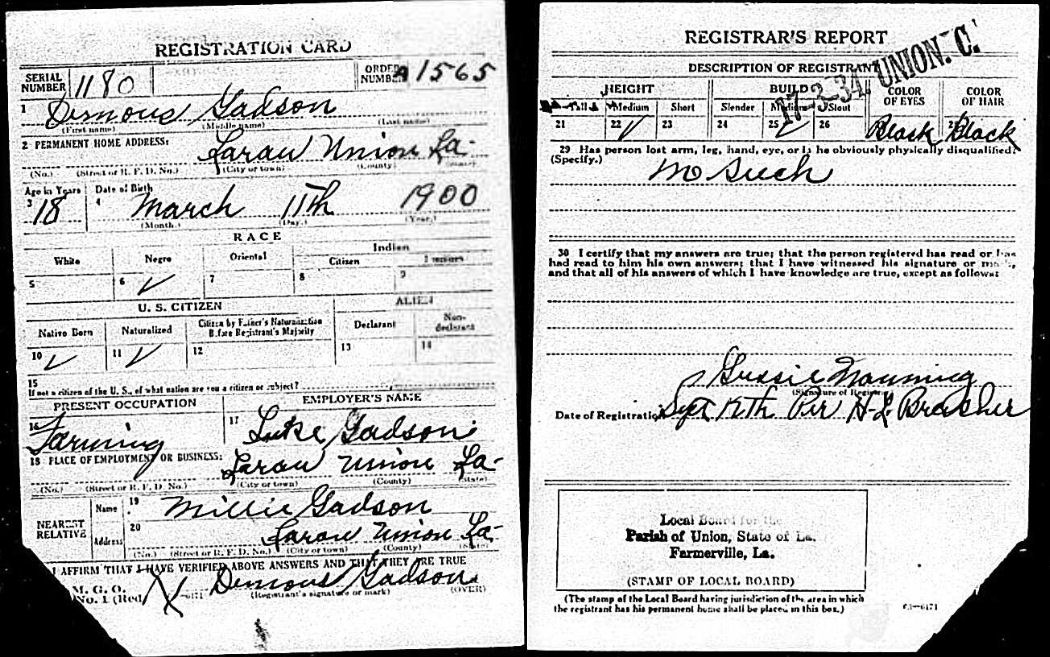 REGISTRATION CARD
SERIAL NUMBER 1180 ORDER NUMBER A1565
1 Demous Gadson
(First name) (Middle name) (Last name)
2 PERMANENT HOME ADDRESS:
Laran Union La.
(No.) (Street or R. F. D. No.) (City or town) (County) (State)
Age in Years Date of Birth
3 18 4 March 11th 1900
(Month.) (Day.) (Year.)
RACE
White Negro Oriental Indian
Citizen
5 6 ✓ 7 8 9
U. S. CITIZEN ALIEN
Native Born Naturalized Citizen by Father's Naturalization Before Registrant's Majority Declarant Non-declarant
10 ✓ 11 ✓ 12 13 14
15
If not a citizen of the U. S., of what nation are you a citizen or subject?
PRESENT OCCUPATION EMPLOYER'S NAME
16 Farming 17 Luke Gadson
18 PLACE OF EMPLOYMENT OR BUSINESS:
Laran Union La-
(No.) (Street or R. F. D. No.) (City or town) (County) (State)
NEAREST RELATIVE
Name 19 Millie Gadson
Address 20 Laran Union La-
(No.) (Street or R. F. D. No.) (City or town) (County) (State)
I AFFIRM THAT I HAVE VERIFIED ABOVE ANSWERS AND THAT THEY ARE TRUE
P. M. G. O.
No. 1 (Red X Demous Gadson
(Registrant's signature or mark) (OVER)
REGISTRAR'S REPORT
17-3-34. UNION. C.
DESCRIPTION OF REGISTRANT
HEIGHT BUILD COLOR OF EYES COLOR OF HAIR
Tall Medium Short Slender Medium Stout
21 22 ✓ 23 24 25 ✓ 26 Black Black
29 Has person lost arm, leg, hand, eye, or is he obviously physically disqualified?
(Specify.)
No Such
30 I certify that my answers are true; that the person registered has read or has
had read to him his own answers; that I have witnessed his signature or mark,
and that all of his answers of which I have knowledge are true, except as follows:
Gussie Nanning
(Signature of Registrar)
Date of Registration Sept 12th Per H L Brasher
Local Board for the
Parish of Union, State of La.
Farmerville, La.
(STAMP OF LOCAL BOARD)
(The stamp of the Local Board having jurisdiction of the area in which
the registrant has his permanent home shall be placed in this box.)